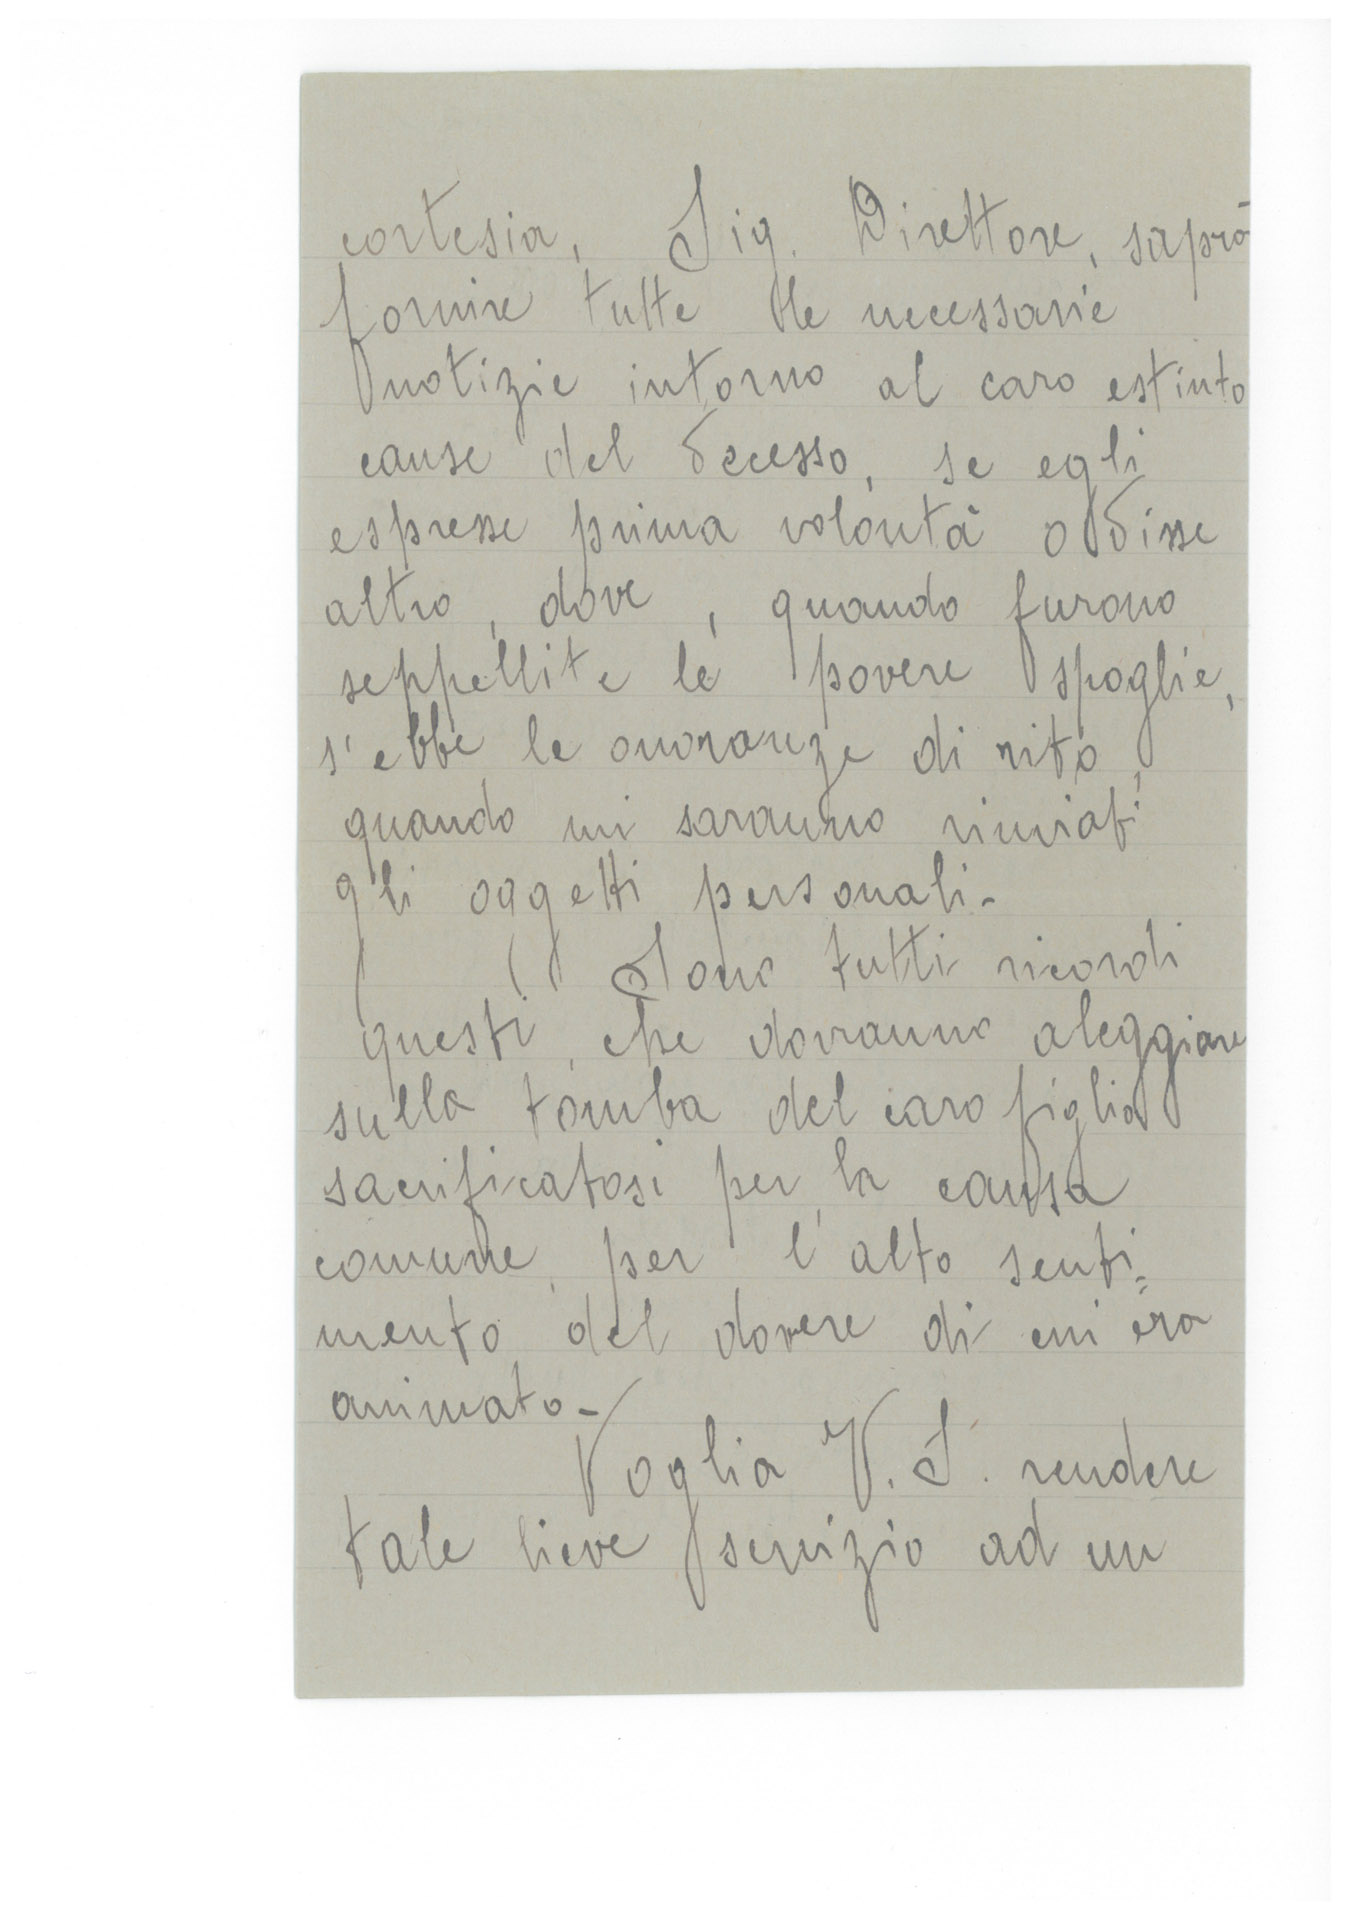 cortesia, Sig. Direttore, saprà
fornire tutte le necessarie
notizie intorno al caro estinto
cause del decesso, se egli
espresse prima volontà o disse
altro, dove, quando furono
seppellite le povere spoglie,
s'ebbe le onoranze di rito,
quando mi saranno rinviati
gli oggetti personali-
Sono tutti ricordi
questi, che dovranno aleggiare
sulla tomba del caro figlio
sacrificatosi per la causa
comune, per l'alto senti=
mento del dovere di cui era
animato-
Voglia V. S. rendere
tale lieve servizio ad un